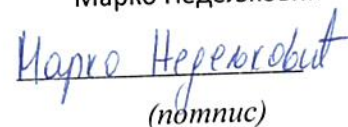 Марко Недељковић
Марко Недељковић
(потпис)